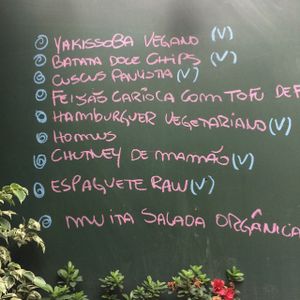 YAKISSOBA VEGANO (V)
BATATA DOCE CHIPS (V)
CUSCUS PAULISTA (V)
FEIJÃO CARIOCA COM TOFU DEF
HAMBURGUER VEGETARIANO (V)
HOMUS
CHUTNEY DE MAMÃO (V)
ESPAGUETE RAW (V)
MUITA SALADA ORGÂNICA